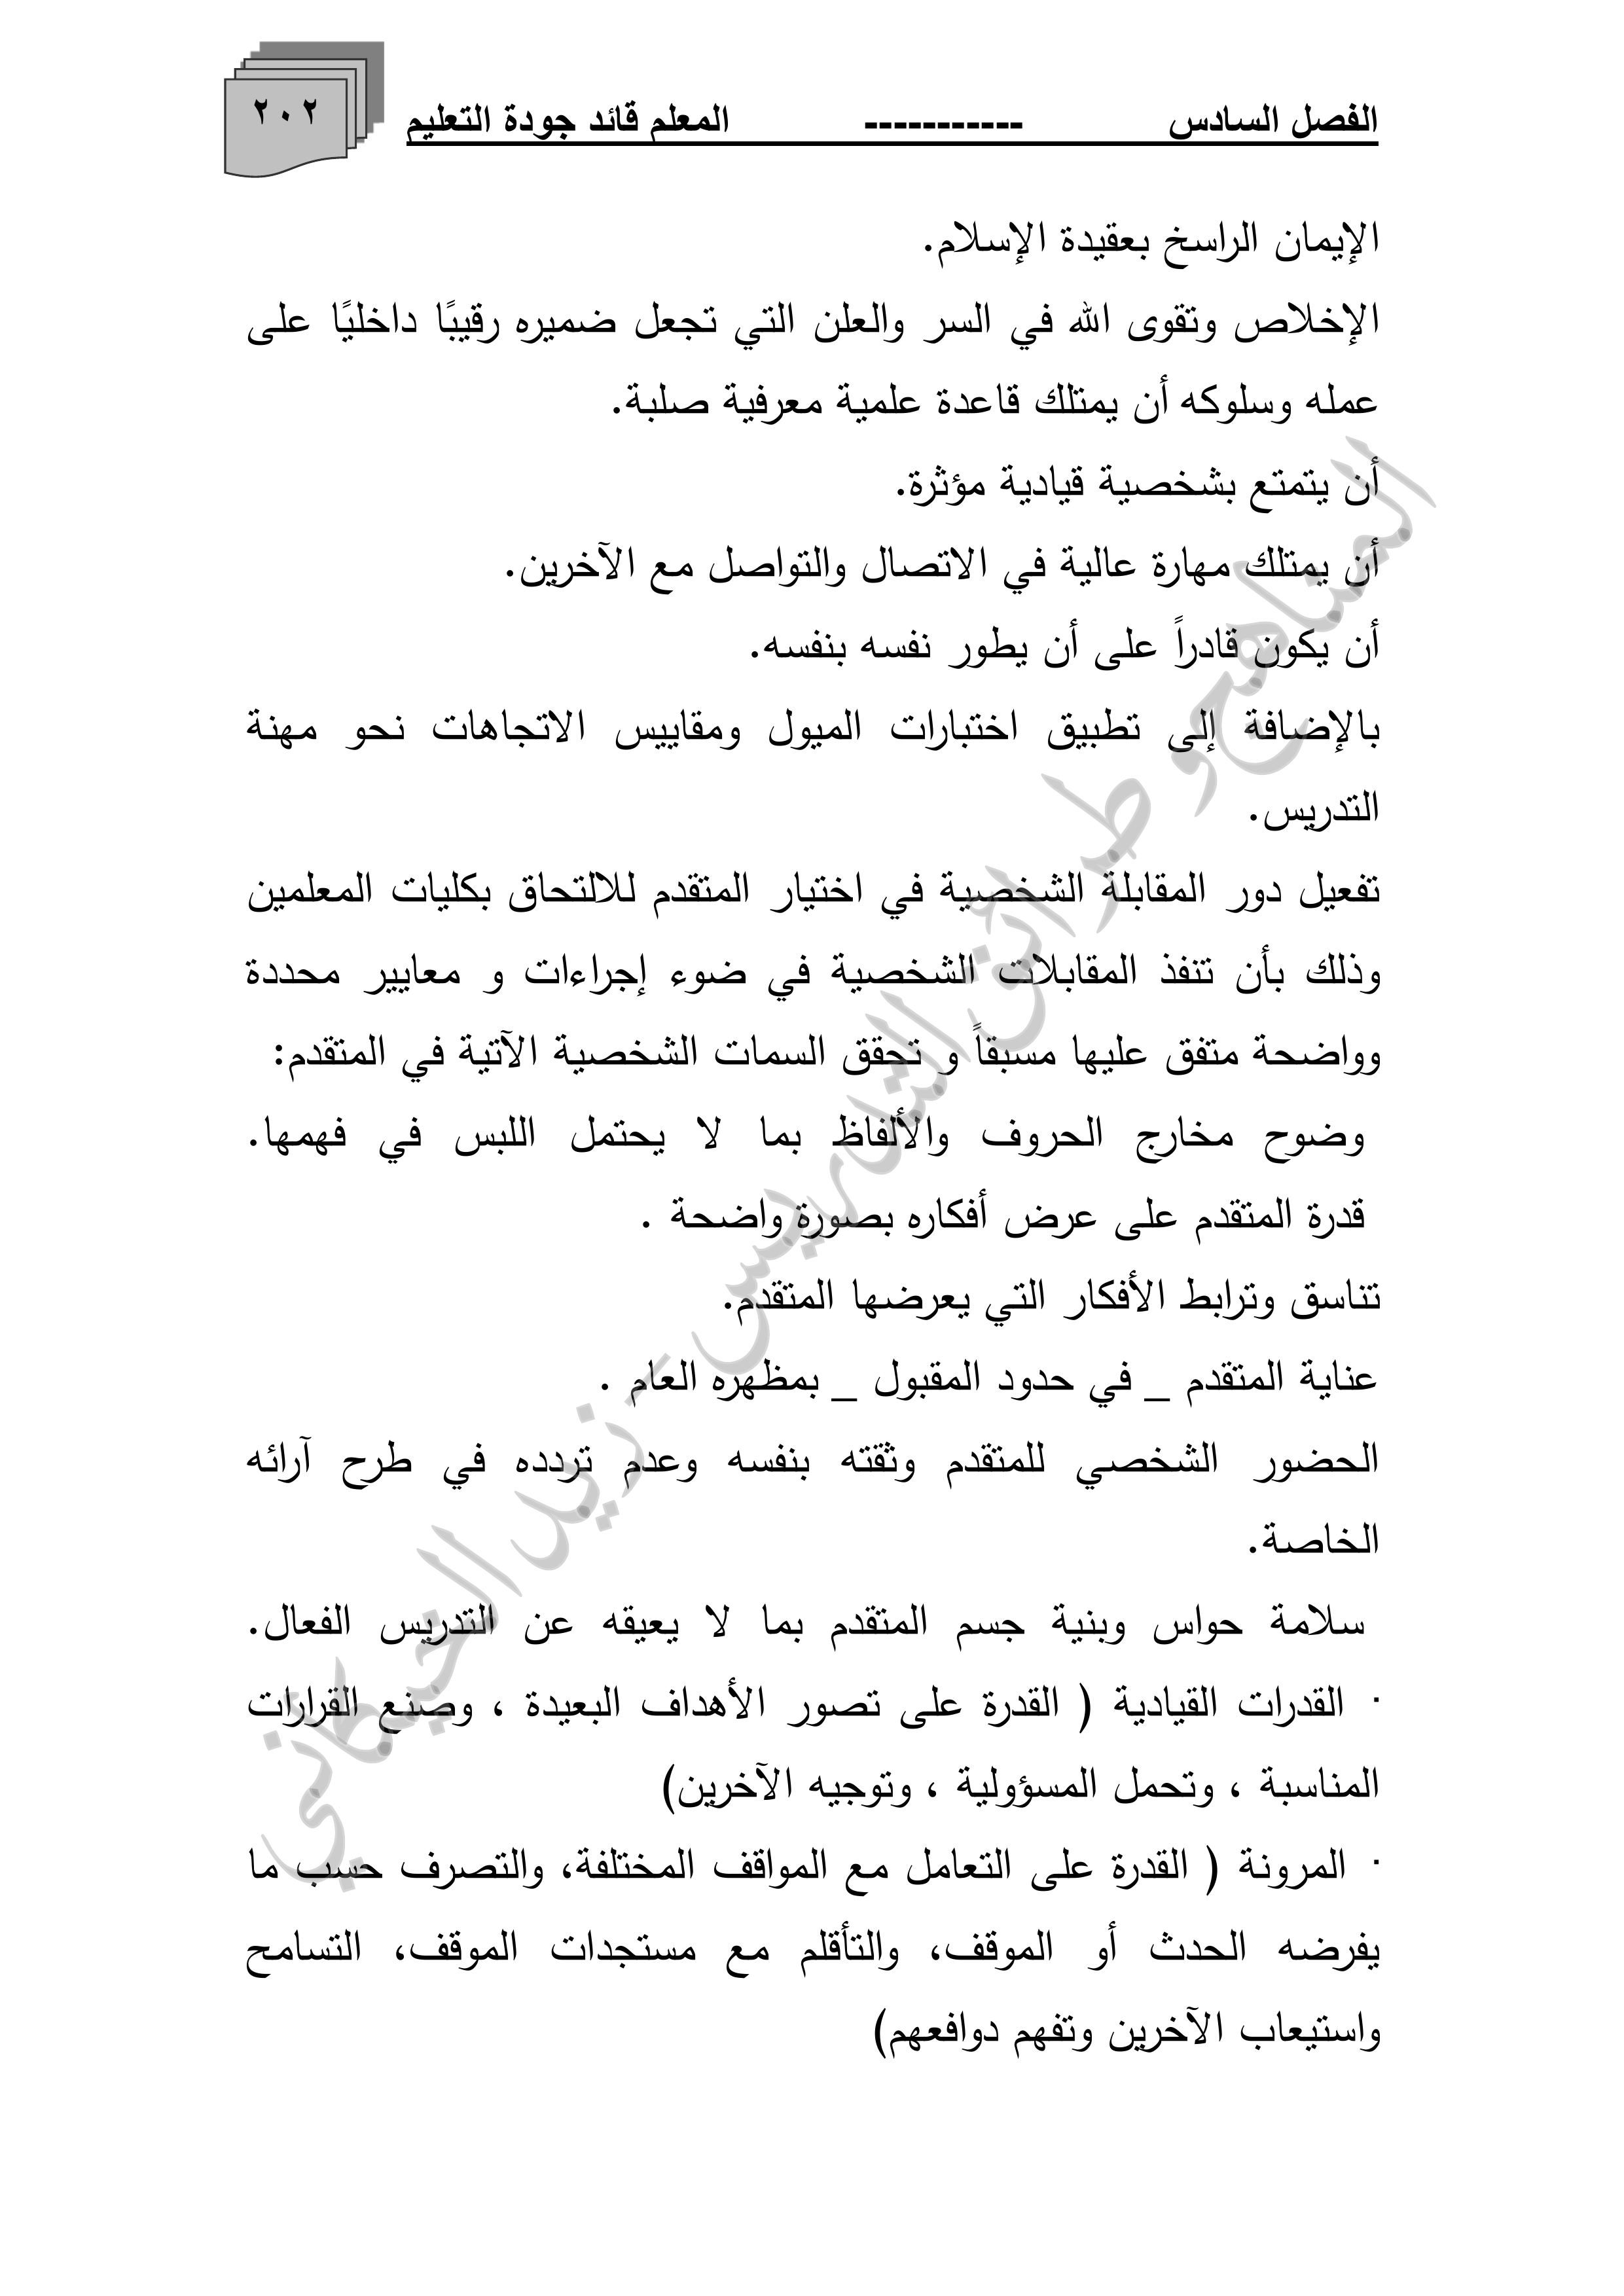 الفصل السادس ----------- المعلم قائد جودة التعليم
٢٠٢
الإيمان الراسخ بعقيدة الإسلام.
الإخلاص وتقوى الله في السر والعلن التي تجعل ضميره رقيبًا داخليًا على
عمله وسلوكه أن يمتلك قاعدة علمية معرفية صلبة.
أن يتمتع بشخصية قيادية مؤثرة.
أن يمتلك مهارة عالية في الاتصال والتواصل مع الآخرين.
أن يكون قادراً على أن يطور نفسه بنفسه.
بالإضافة إلى تطبيق اختبارات الميول ومقاييس الاتجاهات نحو مهنة
التدريس.
تفعيل دور المقابلة الشخصية في اختيار المتقدم للالتحاق بكليات المعلمين
وذلك بأن تنفذ المقابلات الشخصية في ضوء إجراءات و معايير محددة
وواضحة متفق عليها مسبقاً و تحقق السمات الشخصية الآتية في المتقدم:
وضوح مخارج الحروف والألفاظ بما لا يحتمل اللبس في فهمها.
قدرة المتقدم على عرض أفكاره بصورة واضحة .
تناسق وترابط الأفكار التي يعرضها المتقدم.
عناية المتقدم _ في حدود المقبول _ بمظهره العام .
الحضور الشخصي للمتقدم وثقته بنفسه وعدم تردده في طرح آرائه
الخاصة.
سلامة حواس وبنية جسم المتقدم بما لا يعيقه عن التدريس الفعال.
· القدرات القيادية ( القدرة على تصور الأهداف البعيدة ، وصنع القرارات
المناسبة ، وتحمل المسؤولية ، وتوجيه الآخرين)
· المرونة ( القدرة على التعامل مع المواقف المختلفة، والتصرف حسب ما
يفرضه الحدث أو الموقف، والتأقلم مع مستجدات الموقف، التسامح
واستيعاب الآخرين وتفهم دوافعهم)
المناهج وطرائق التدريس - زيد الخيكاني